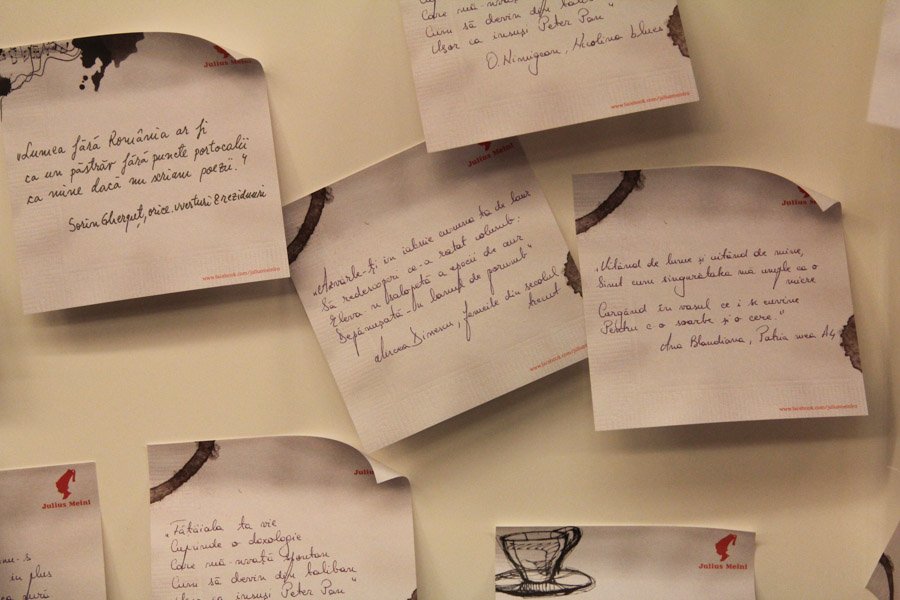 Julius Meinl
„Lumea fără România ar fi
ca un păstrăv fără puncte portocalii
ca mine dacă nu scriam poezii."
Sorin Gherguț, orice. uverturi & reziduuri
www.facebook.com/juliusmeinlro
Care mă-nvață
Cum să devin deși taliban
Ușor ca însuși Peter Pan"
O. Nimigean, Nicolina blues
www.facebook.com/juliusmeinlro
Julius Meinl
„Azvârle-ți în iubire cununa ta de laur
Să redescoperi ce-a ratat columb:
Eleva n saloپetă a epocii de aur
Depănușată-n lanuri de porumb"
Mircea Dinescu, femeile din secolul
trecut
www.facebook.com/juliusmeinlro
Julius
„Uitând de lume și uitând de mine,
Simt cum singurătatea mă umple ca o
miere
Curgând în vasul ce i se cuvine
Pentru c-o soarbe și-o cere."
Ana Blandiana, Patria mea A4
www.facebook.com/juliusmeinlro
Julius Meinl
în plus
Julius
„Fâțâiala ta vie
Cuprinde o doxologie
Care mă-nvață spontan
Cum să devin deși taliban
Ușor ca însuși Peter Pan"
Julius Meinl